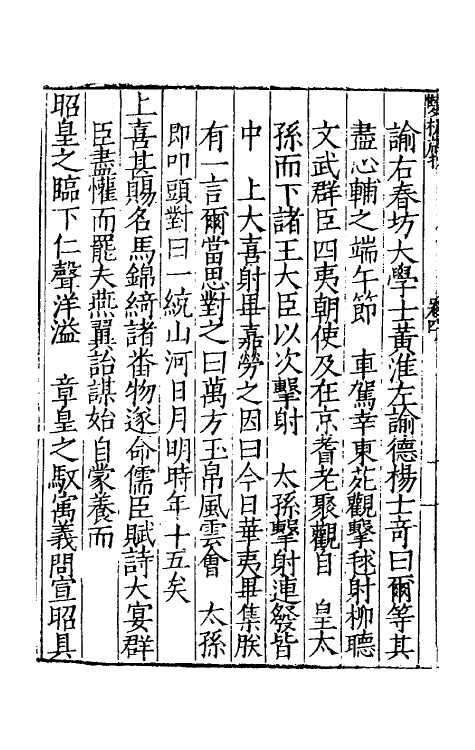 諭右春坊大學士黃淮左諭德楊士奇曰爾等其
盡心輔之端午節　車駕幸東苑觀擊毬射柳聽
文武群臣四夷朝使及在京耆老聚觀自　皇太
孫而下諸王大臣以次擊射　太孫擊射連發皆
中　上大喜射畢嘉勞之因曰今日華夷畢集朕
有一言爾當思對之曰萬方玉帛風雲會　太孫
即叩頭對曰一統山河日月明時年十五矣
上喜甚賜名馬錦綺諸番物遂命儒臣賦詩大宴群
臣盡懽而罷夫燕翼詒謀始自蒙養而
昭皇之臨下仁聲洋溢　章皇之馭寓義問宣昭具
卷四